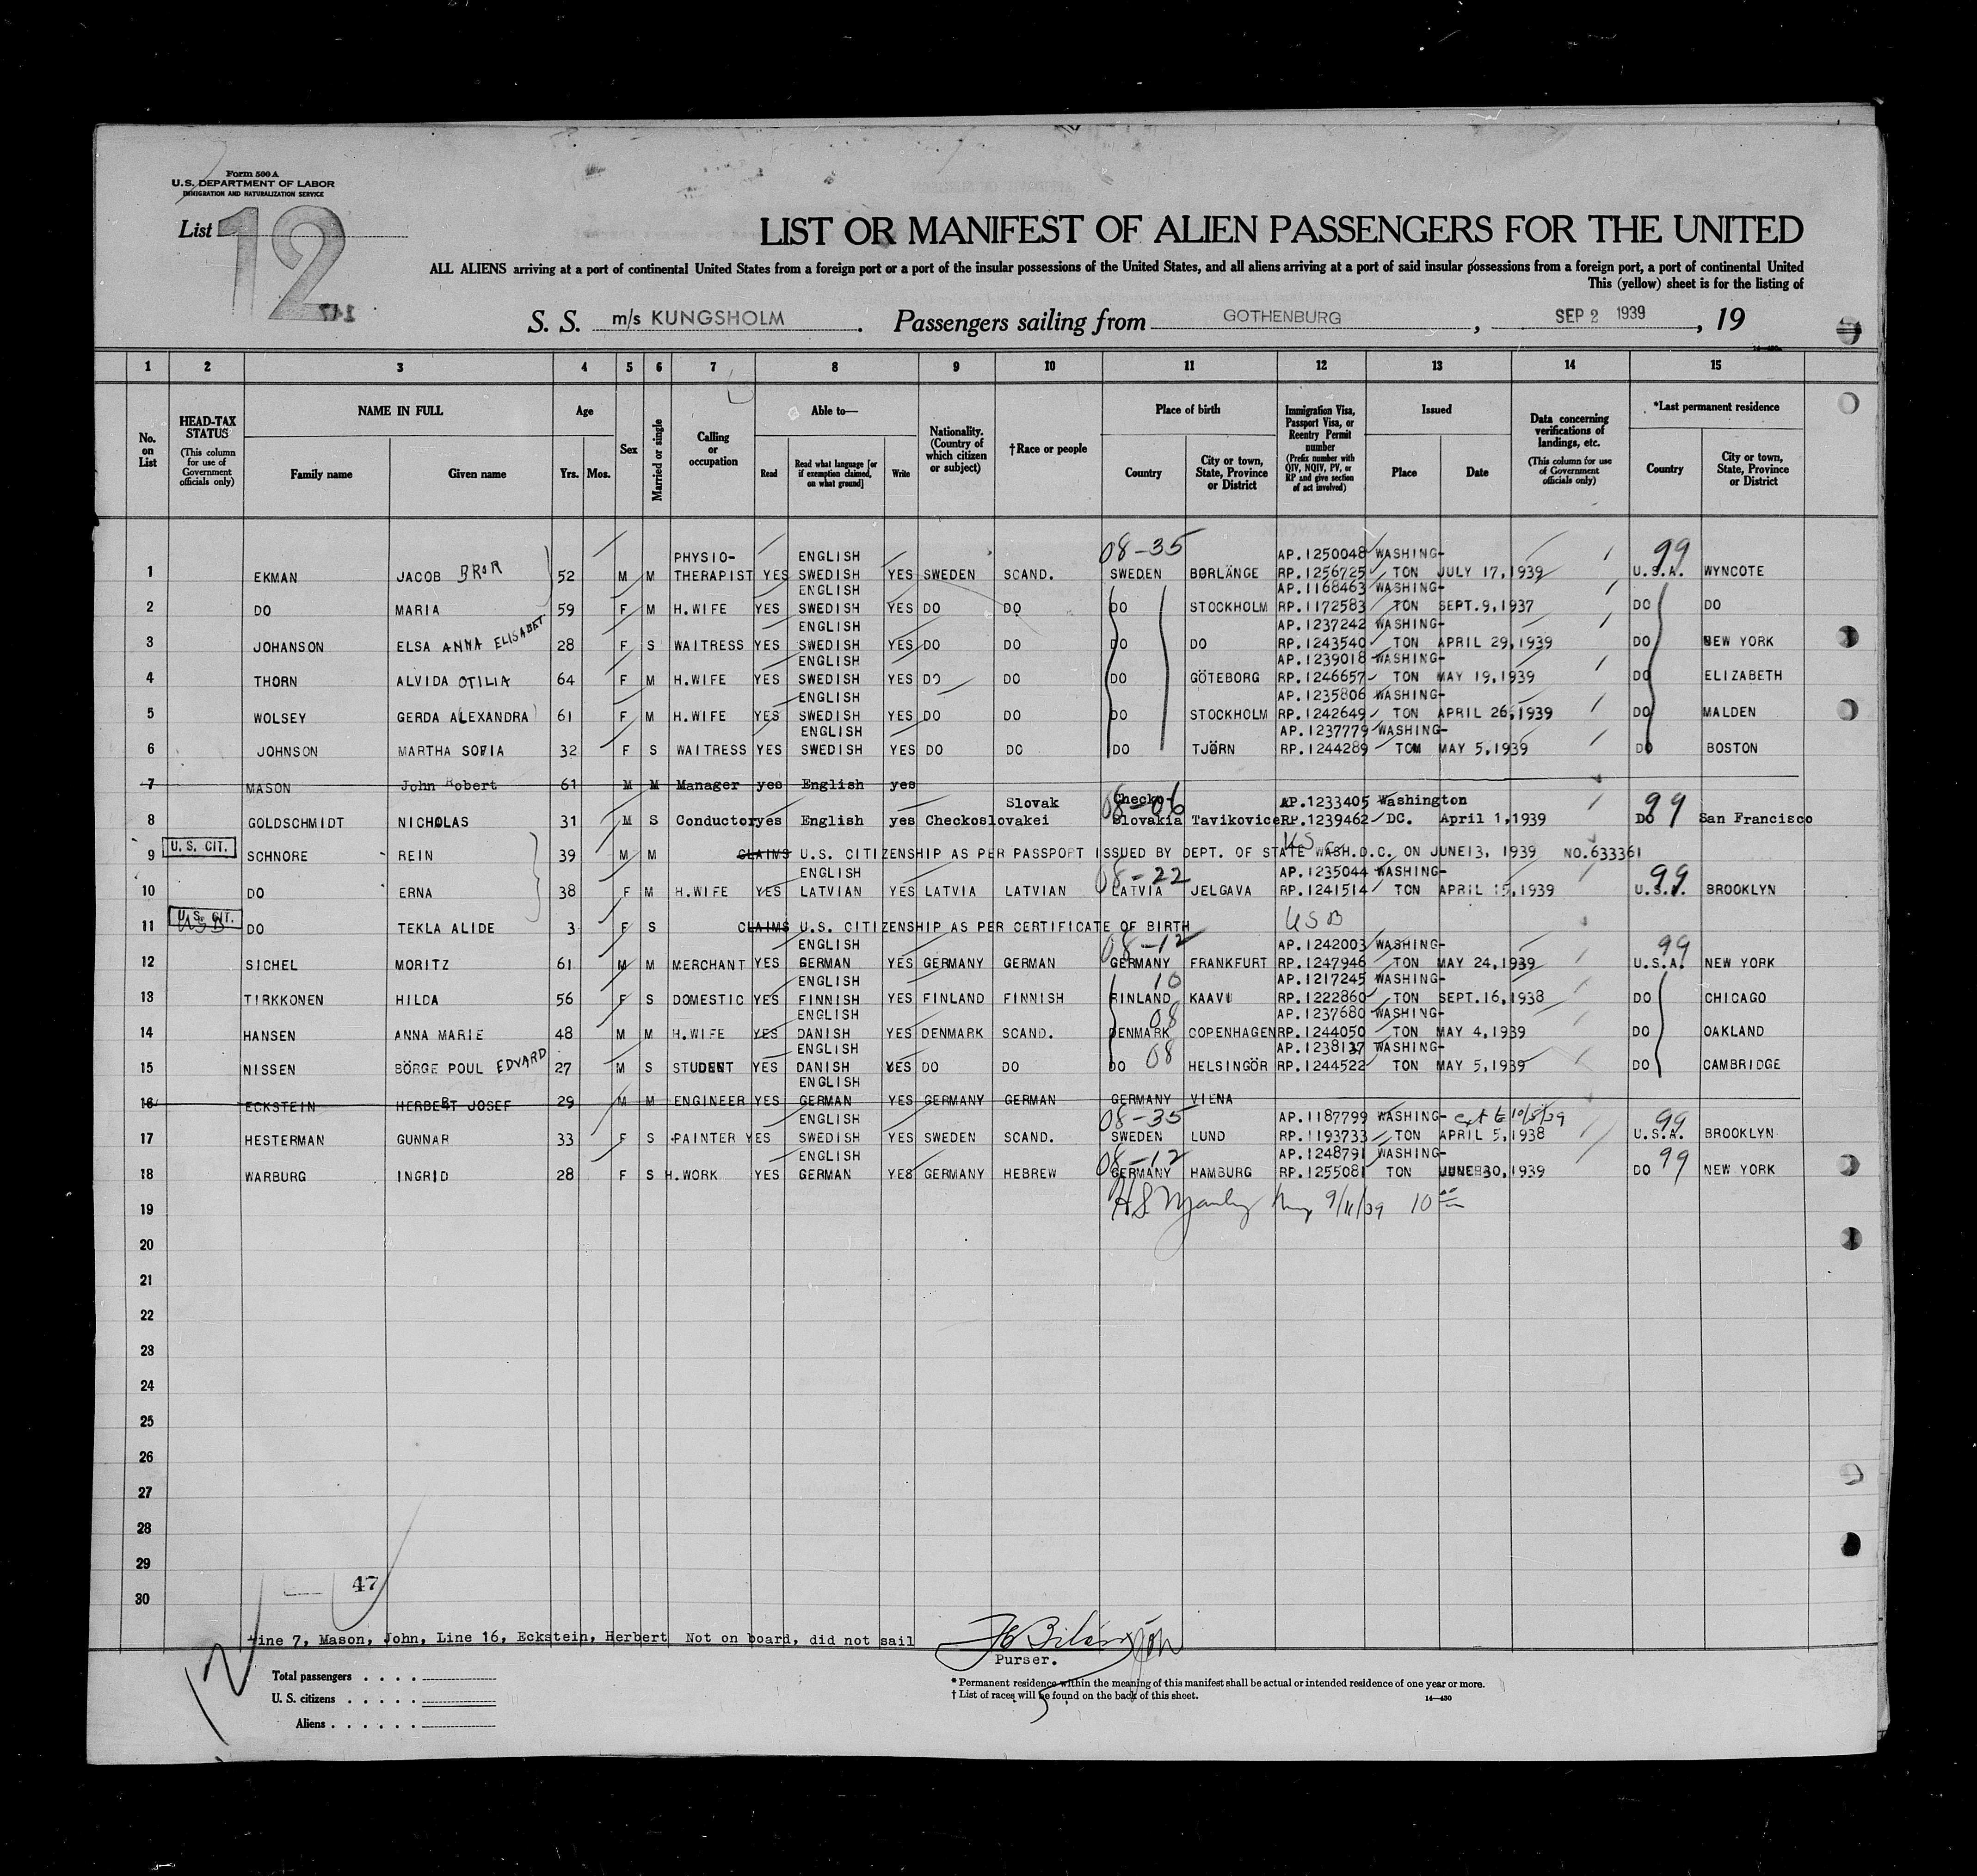 Form 500 A
U.S. DEPARTMENT OF LABOR
IMMIGRATION AND NATURALIZATION SERVICE
List 12
147
LIST OR MANIFEST OF ALIEN PASSENGERS FOR THE UNITED
ALL ALIENS arriving at a port of continental United States from a foreign port or a port of the insular possessions of the United States, and all aliens arriving at a port of said insular possessions from a foreign port, a port of continental United
This (yellow) sheet is for the listing of
S. S. m/s KUNGSHOLM. Passengers sailing from GOTHENBURG, SEP 2 1939, 19
14—430
1 2 3 4 5 6 7 8 9 10 11 12 13 14 15
No. on List
HEAD-TAX STATUS (This column for use of Government officials only)
NAME IN FULL Family name Given name
Age Yrs. Mos.
Sex
Married or single
Calling or occupation
Able to— Read Read what language [or if exemption claimed, on what ground] Write
Nationality. (Country of which citizen or subject)
†Race or people
Place of birth Country City or town, State, Province or District
Immigration Visa, Passport Visa, or Reentry Permit number (Prefix number with QIV, NQIV, PV, or RP and give section of act involved)
Issued Place Date
Data concerning verifications of landings, etc. (This column for use of Government officials only)
*Last permanent residence Country City or town, State, Province or District
PHYSIO- ENGLISH 08-35 AP.1250048 WASHING- 99
1 EKMAN JACOB BROR 52 M M THERAPIST YES SWEDISH YES SWEDEN SCAND. SWEDEN BORLÄNGE RP.1256725 TON JULY 17,1939 U.S.A. WYNCOTE
ENGLISH AP.1168463 WASHING-
2 DO MARIA 59 F M H.WIFE YES SWEDISH YES DO DO DO STOCKHOLM RP.1172583 TON SEPT.9,1937 DO DO
ENGLISH AP.1237242 WASHING-
3 JOHANSON ELSA ANNA ELISABET 28 F S WAITRESS YES SWEDISH YES DO DO DO DO RP.1243540 TON APRIL 29,1939 DO NEW YORK
ENGLISH AP.1239018 WASHING-
4 THORN ALVIDA OTILIA 64 F M H.WIFE YES SWEDISH YES DO DO DO GÖTEBORG RP.1246657 TON MAY 19,1939 DO ELIZABETH
ENGLISH AP.1235806 WASHING-
5 WOLSEY GERDA ALEXANDRA 61 F M H.WIFE YES SWEDISH YES DO DO DO STOCKHOLM RP.1242649 TON APRIL 26,1939 DO MALDEN
ENGLISH AP.1237779 WASHING-
6 JOHNSON MARTHA SOFIA 32 F S WAITRESS YES SWEDISH YES DO DO DO TJÖRN RP.1244289 TOM MAY 5,1939 DO BOSTON
7 MASON John Robert 61 M M Manager yes English yes
Slovak Checko- 08-06 AP.1233405 Washington 99
8 GOLDSCHMIDT NICHOLAS 31 M S Conductor yes English yes Checkoslovakei Slovakia Tavikovice RP.1239462 DC. April 1,1939 DO San Francisco
U.S. CIT. US
9 SCHNORE REIN 39 M M CLAIMS U.S. CITIZENSHIP AS PER PASSPORT ISSUED BY DEPT. OF STATE WASH.D.C. ON JUNE13, 1939 NO.633361
ENGLISH 08-22 AP.1235044 WASHING- 99
10 DO ERNA 38 F M H.WIFE YES LATVIAN YES LATVIA LATVIAN LATVIA JELGAVA RP.1241514 TON APRIL 15,1939 U.S.A. BROOKLYN
U.S. CIT. USB USB
11 DO TEKLA ALIDE 3 F S CLAIMS U.S. CITIZENSHIP AS PER CERTIFICATE OF BIRTH
ENGLISH 08-12 AP.1242003 WASHING- 99
12 SICHEL MORITZ 61 M M MERCHANT YES GERMAN YES GERMANY GERMAN GERMANY FRANKFURT RP.1247946 TON MAY 24,1939 U.S.A. NEW YORK
ENGLISH 10 AP.1217245 WASHING-
13 TIRKKONEN HILDA 56 F S DOMESTIC YES FINNISH YES FINLAND FINNISH FINLAND KAAVI RP.1222860 TON SEPT.16,1938 DO CHICAGO
ENGLISH 08 AP.1237680 WASHING-
14 HANSEN ANNA MARIE 48 M M H.WIFE YES DANISH YES DENMARK SCAND. DENMARK COPENHAGEN RP.1244050 TON MAY 4,1939 DO OAKLAND
ENGLISH 08 AP.1238137 WASHING-
15 NISSEN BÖRGE POUL EDVARD 27 M S STUDENT YES DANISH YES DO DO DO HELSINGÖR RP.1244522 TON MAY 5,1939 DO CAMBRIDGE
ENGLISH
16 ECKSTEIN HERBERT JOSEF 29 M M ENGINEER YES GERMAN YES GERMANY GERMAN GERMANY VIENA
ENGLISH 08-35 AP.1187799 WASHING- ext to 10/5/39 99
17 HESTERMAN GUNNAR 33 F S PAINTER YES SWEDISH YES SWEDEN SCAND. SWEDEN LUND RP.1193733 TON APRIL 5,1938 U.S.A. BROOKLYN
ENGLISH 08-12 AP.1248791 WASHING- 99
18 WARBURG INGRID 28 F S H.WORK YES GERMAN YES GERMANY HEBREW GERMANY HAMBURG RP.1255081 TON JUNE 30,1939 DO NEW YORK
19 9/11/39 10 00
20
21
22
23
24
25
26
27
28
29
47
30
Line 7, Mason, John, Line 16, Eckstein, Herbert Not on board, did not sail
Purser.
12
Total passengers . . . .
U. S. citizens . . . . .
Aliens . . . . . .
* Permanent residence within the meaning of this manifest shall be actual or intended residence of one year or more.
† List of races will be found on the back of this sheet.
14—430
5